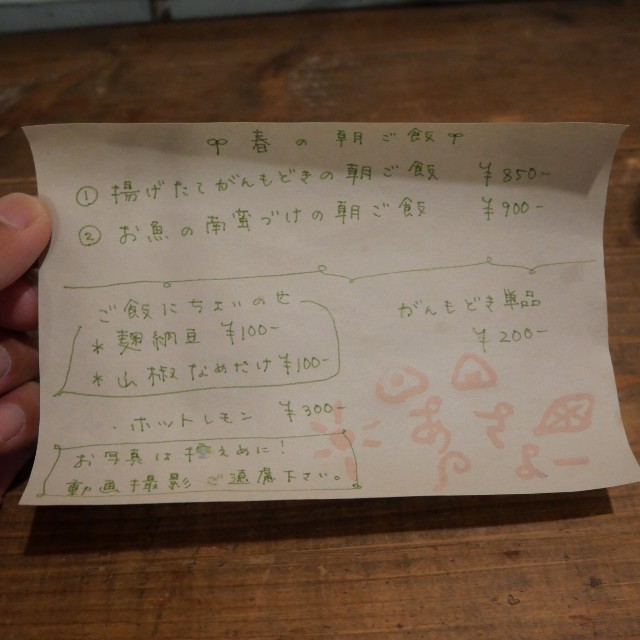 春の朝ご飯
① 揚げたてがんもどきの朝ご飯 ¥850-
② お魚の南蛮づけの朝ご飯 ¥900-
ご飯にちょいのせ
*麹納豆 ¥100-
*山椒なめたけ ¥100-
・ホットレモン ¥300-
お写真は控えめに!
動画撮影ご遠慮下さい。
がんもどき単品
¥200-